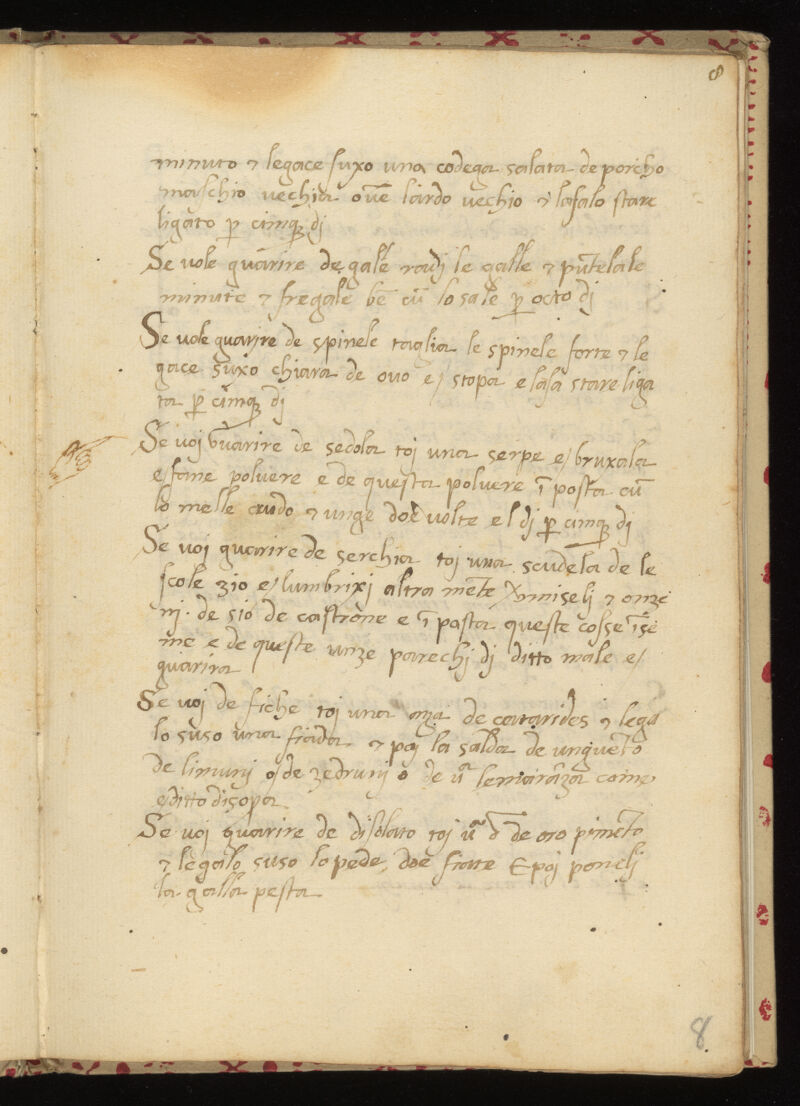 8
minuto & legace suxo una codega salata de porcho
maschio vechia ov̄e lardo vechio & lasalo stare
ligato p̱ cimq̱ dj
Se vole guarire de gale radj le galle & pūtelale
minute & fregale bē cū lo sale p̱ octo dj
Se vole guarire de spinele taglia le spinele forte & le
gace suxo chiara de ovo e/ stopa e lasa stare liga
ta p̱ cimq̱ dj
Se voj guarire de sedola toj una serpe e/ bruxala
e/ fane polvere e de questa polvere ī pasta cū
lo melle crudo & unge doe volte el dj p̱ cimq̱ dj
Se voj guarire de serchia toj una scudela de le
scole zio e/ lumbrixj altra mēte &
nj. de sio de castrone e ī pasta queste cosse īsē
me e de queste unze parechj dj ditto male e/
guarira
Se voj de fiche toj una de catarides & lega
lo suso una fiada & poj la salda de unguēto
de limunj o/ de zedrunj o de come
e/ ditto disopra
Se voj guarire de disolato toj ū ō de oro pimēto
& legalo suso lo pede doe fiate E poj ponelj
la galla pesta
8.